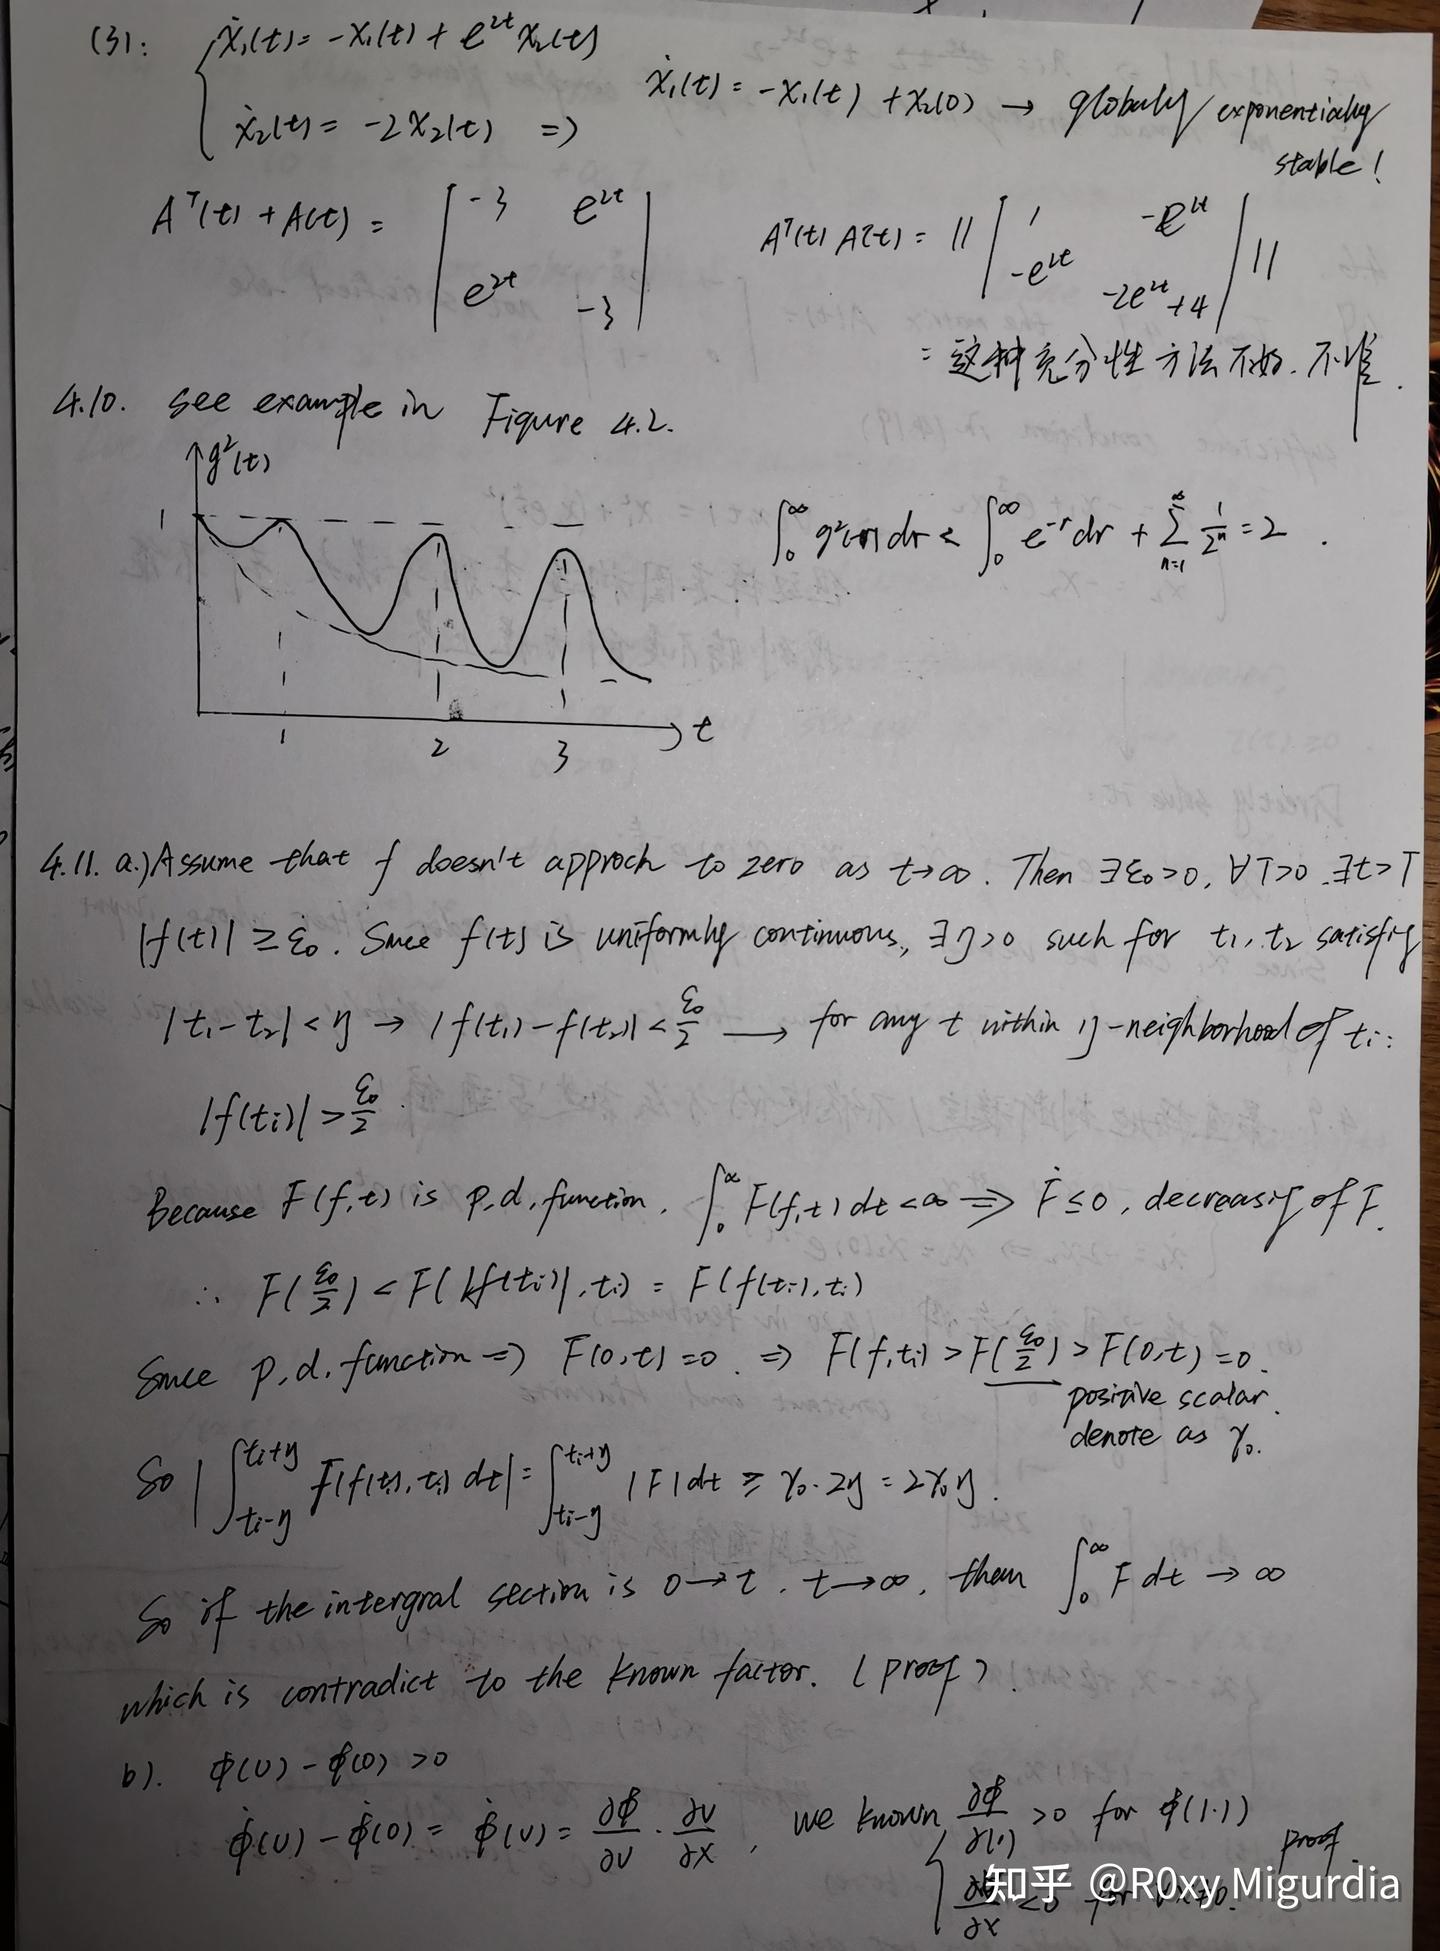 (3): ẋ₁(t) = -x₁(t) + e²ᵗ x₂(t)
ẋ₂(t) = -2x₂(t) ⇒ ẋ₁(t) = -x₁(t) + x₂(0) → globally exponentially stable!
Aᵀ(t) + A(t) = | -3 e²ᵗ |
| e²ᵗ -3 |
Aᵀ(t) A(t) = || | 1 -e²ᵗ |
| -e²ᵗ -2e²ᵗ+4 | ||
= 这种充分性方法不好. 不准.
4.10. see example in Figure 4.2.
g²(t)
1
1 2 3 t
∫₀^∞ g²(r)dr < ∫₀^∞ e⁻ʳdr + Σₙ₌₁^∞ 1/2ⁿ = 2.
4.11. a.) Assume that f doesn't approch to zero as t→∞. Then ∃ε₀>0, ∀T>0 .∃t>T
|f(t)| ≥ ε₀. Since f(t) is uniformly continuous, ∃η>0 such for t₁, t₂ satisfy
|t₁-t₂| < η → |f(t₁)-f(t₂)| < ε₀/2 ⟶ for any t within η-neighborhood of tᵢ:
|f(tᵢ)| > ε₀/2.
Because F(f,t) is p.d. function, ∫₀^∞ F(f,t)dt<∞ ⇒ Ḟ≤0, decreasing of F.
∴ F(ε₀/2) < F(|f(tᵢ)|, tᵢ) = F(f(tᵢ), tᵢ)
Since p.d. function ⇒ F(0,t)=0. ⇒ F(f,tᵢ) > F(ε₀/2) > F(0,t)=0.
positive scalar.
denote as γ₀.
So |∫_{tᵢ-η}^{tᵢ+η} F(f(tᵢ), tᵢ) dt| = ∫_{tᵢ-η}^{tᵢ+η} |F|dt ≥ γ₀·2η = 2γ₀η.
So if the intergral section is 0→t, t→∞, then ∫₀^∞ F dt → ∞
which is contradict to the known factor. (proof)
b). φ(V) - φ(0) > 0
φ̇(V) - φ̇(0) = φ̇(V) = ∂φ/∂V · ∂V/∂x, we known ∂φ/∂(·) >0 for φ(|·|)
<0 for ∀x≠0.
proof.
知乎 @R0xy Migurdia